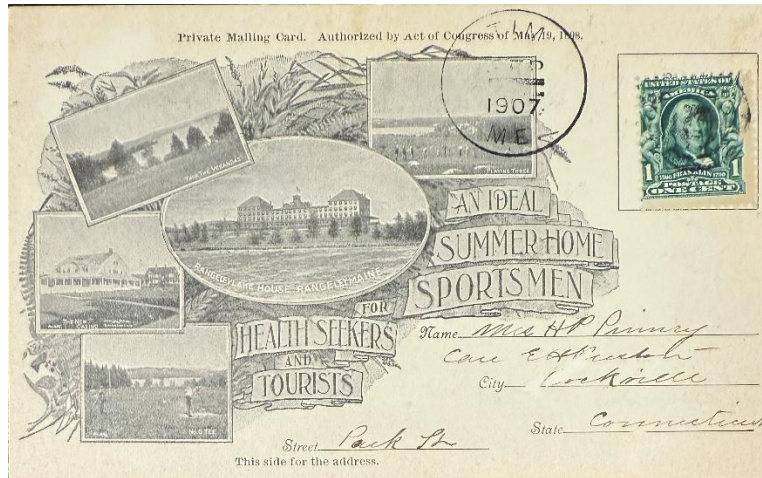 Private Mailing Card. Authorized by Act of Congress of May 19, 1898.
1907
ME
UNITED STATES OF
AMERICA
1 FRANKLIN 1
POSTAGE
ONE CENT
FROM THE VERANDAS
PLAYING THREE
RANGELEY LAKE HOUSE RANGELEY MAINE.
CASINO
NO. 6 TEE
AN IDEAL
SUMMER HOME
FOR SPORTSMEN
HEALTH SEEKERS
AND
TOURISTS
Name Mrs H P
Care E H
City Rockville
State Connecticut
Street Park St
This side for the address.